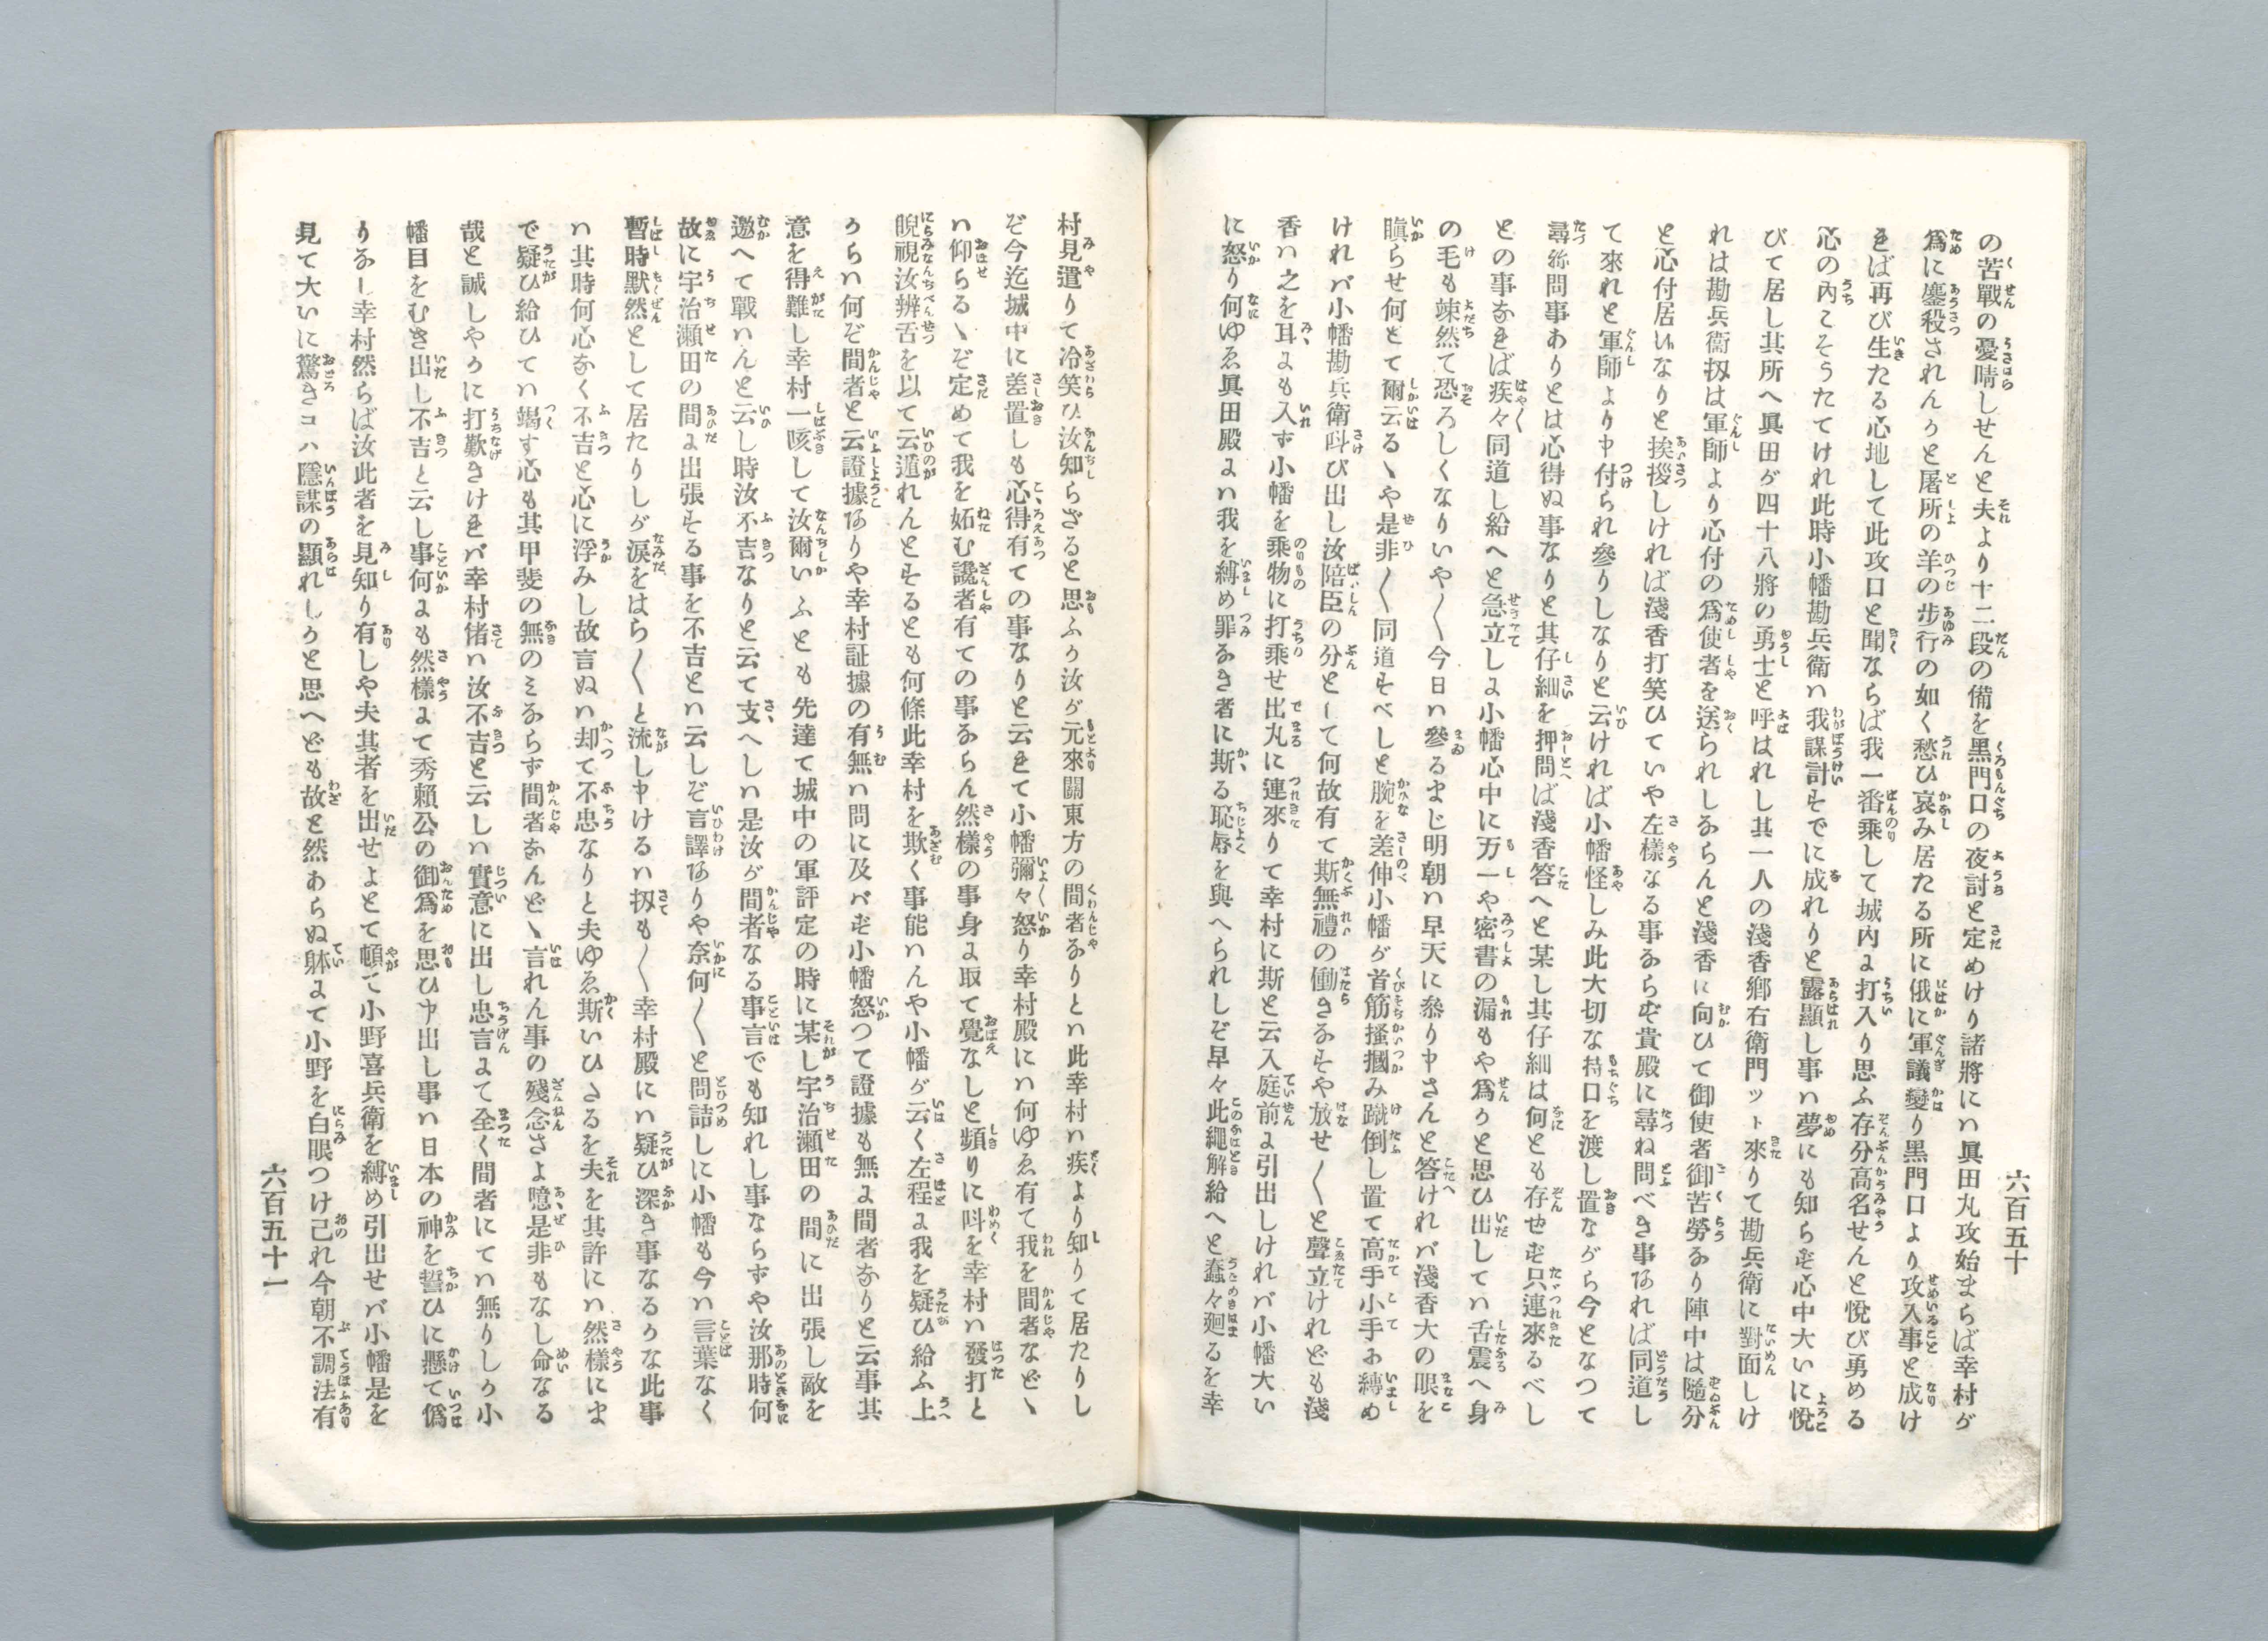 六百五十
の苦戰の憂晴しせんと夫より十二段の備を黒門口の夜討と定めけり諸將にハ眞田丸攻始まらば幸村が
爲に鏖殺されんかと屠所の羊の步行の如く愁ひ哀み居たる所に俄に軍議變り黒門口より攻入事と成け
れば再び生たる心地して此攻口と聞ならば我一番乘して城內に打入り思ふ存分高名せんと悅び勇める
心の內こそうたてけれ此時小幡勘兵衛ハ我謀計すでに成れりと露顯し事ハ夢にも知らず心中大いに悅
びて居し其所へ眞田が四十八將の勇士と呼はれし其一人の淺香鄕右衛門ツト來りて勘兵衛に對面しけ
れは勘兵衞扨は軍師より心付の爲使者を送られしならんと淺香に向ひて御使者御苦勞なり陣中は隨分
と心付居いなりと挨拶しければ淺香打笑ひていや左樣なる事ならず貴殿に尋ね問べき事あれば同道し
て來れと軍師より申付られ參りしなりと云ければ小幡怪しみ此大切な持口を渡し置ながら今となつて
尋ね問事ありとは心得ぬ事なりと其仔細を押問ば淺香答へと某し其仔細は何とも存せず只連來るべし
との事なれば疾々同道し給へと急立しに小幡心中に万一や密書の漏もや爲かと思ひ出してハ舌震へ身
の毛も竦然て恐ろしくなりいや〱今日ハ參るまじ明朝ハ早天に參り申さんと答けれバ淺香大の眼を
瞋らせ何とて爾云るゝや是非〱同道すべしと腕を差伸小幡が首筋搔摑み蹴倒し置て高手小手お縛め
けれバ小幡勘兵衛呌び出し汝陪臣の分として何故有て斯無禮の働きなすや放せ〱と聲立けれども淺
香ハ之を耳にも入ず小幡を乘物に打乘せ出丸に連來りて幸村に斯と云入庭前に引出しけれバ小幡大い
に怒り何ゆゑ眞田殿にハ我を縛め罪なき者に斯る恥辱を與へられしぞ早々此繩解給へと蠢々廻るを幸
村見遣りて冷笑ひ汝知らざると思ふか汝が元來關東方の間者なりとハ此幸村ハ疾より知りて居たりし
ぞ今迄城中に差置しも心得有ての事なりと云れて小幡彌々怒り幸村殿にハ何ゆゑ有て我を間者などゝ
ハ仰らるゝぞ定めて我を妬む讒者有ての事ならん然樣の事身に取て覺なしと頻りに呌を幸村ハ發打と
睨視汝辨舌を以て云遁れんとするとも何條此幸村を欺く事能ハんや小幡が云く左程に我を疑ひ給ふ上
からハ何ぞ間者と云證據ありや幸村証據の有無ハ問に及バず小幡怒つて證據も無に間者なりと云事其
意を得難し幸村一咳して汝爾いふとも先達て城中の軍評定の時に某し宇治瀬田の間に出張し敵を
邀へて戰ハんと云し時汝不吉なりと云て支へしハ是汝が間者なる事言でも知れし事ならずや汝那時何
故に宇治瀬田の間に出張する事を不吉とハ云しぞ言譯ありや奈何〱と問詰しに小幡も今ハ言葉なく
暫時默然として居たりしが淚をはら〱と流し申けるハ扨も〱幸村殿にハ疑ひ深き事なるかな此事
ハ其時何心なく不吉と心に浮みし故言ぬハ却て不忠なりと夫ゆゑ斯いひさるを夫を其許にハ然樣にま
で疑ひ給ひてハ竭す心も其甲斐の無のミならず間者なんどゝ言れん事の殘念さよ噫是非もなし命なる
哉と誠しやかに打歎きけれバ幸村偖ハ汝不吉と云しハ實意に出し忠言にて全く間者にてハ無りしか小
幡目をむき出し不吉と云し事何にも然樣にて秀賴公の御爲を思ひ申出し事ハ日本の神を誓ひに懸て僞
りなし幸村然らば汝此者を見知り有しや夫其者を出せよとて頓て小野喜兵衛を縛め引出せバ小幡是を
見て大いに驚きコハ隱謀の顯れしかと思へども故と然あらぬ躰にて小野を白眼つけ己れ今朝不調法有
六百五十一